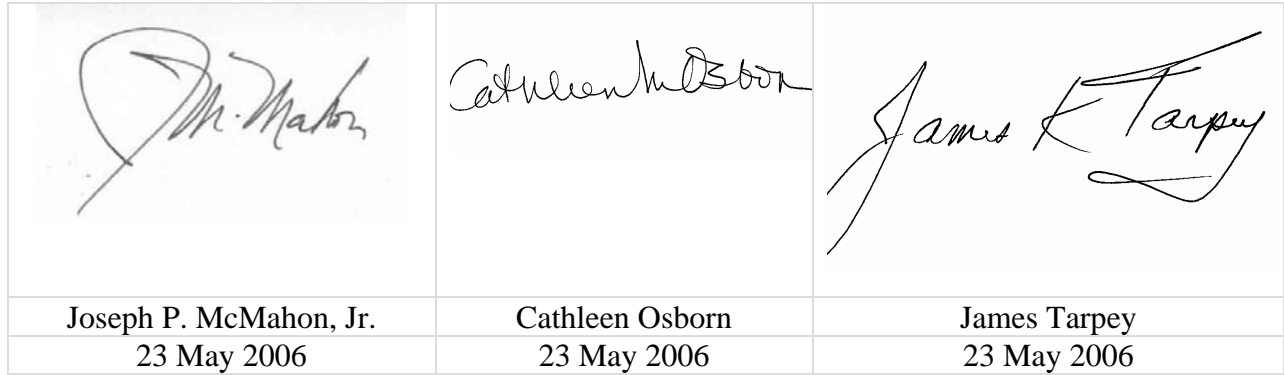 J McMahon
Cathleen M Osborn
James K Tarpey
Joseph P. McMahon, Jr.
Cathleen Osborn
James Tarpey
23 May 2006
23 May 2006
23 May 2006